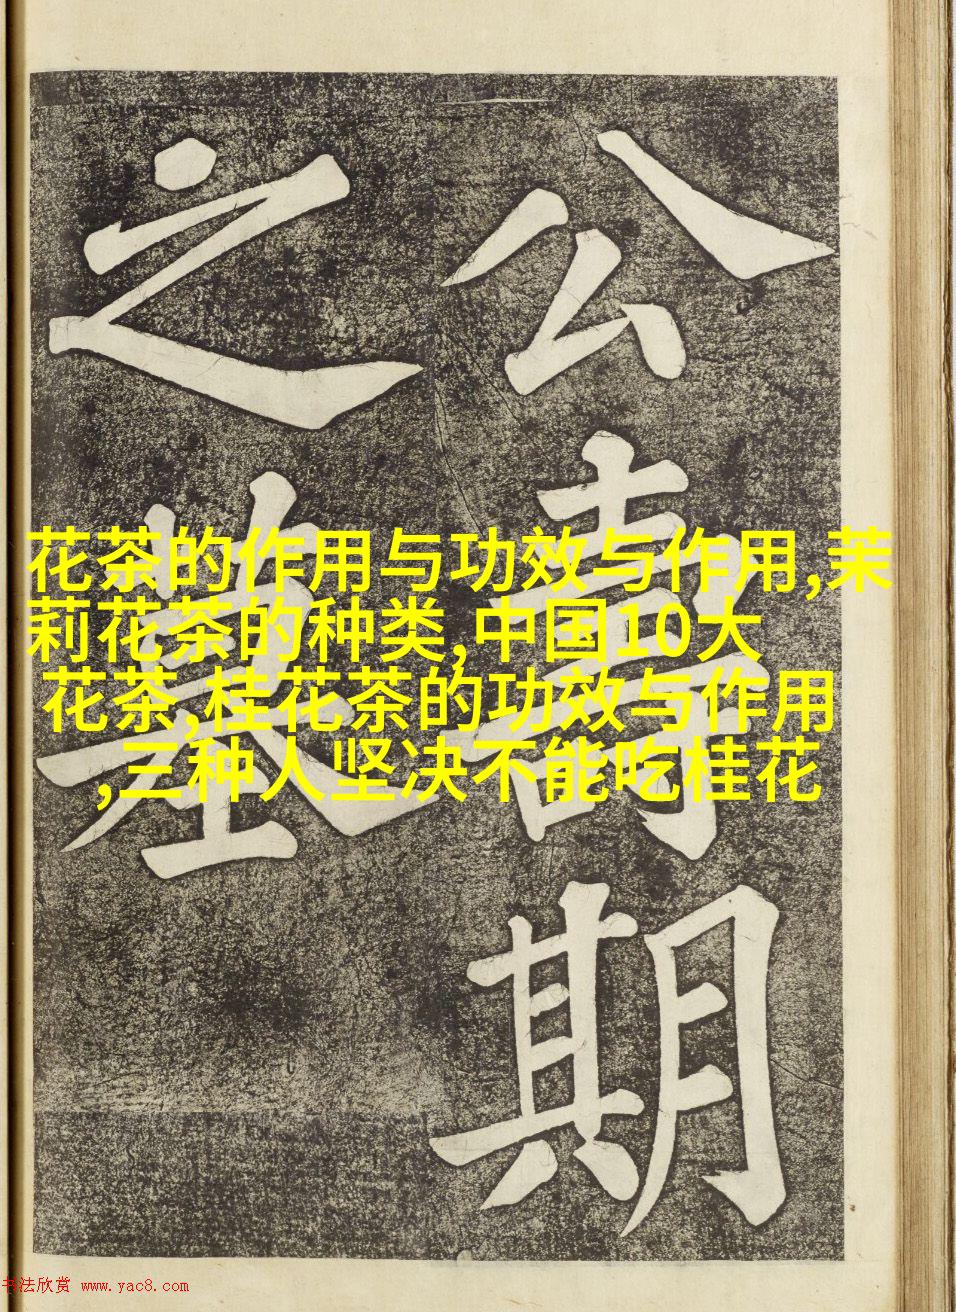 公壽期
之墓
花茶的作用与功效与作用,茉
莉花茶的种类,中国10大
花茶,桂花茶的功效与作用
,三种人坚决不能吃桂花
书法欣赏 www.yac8.com